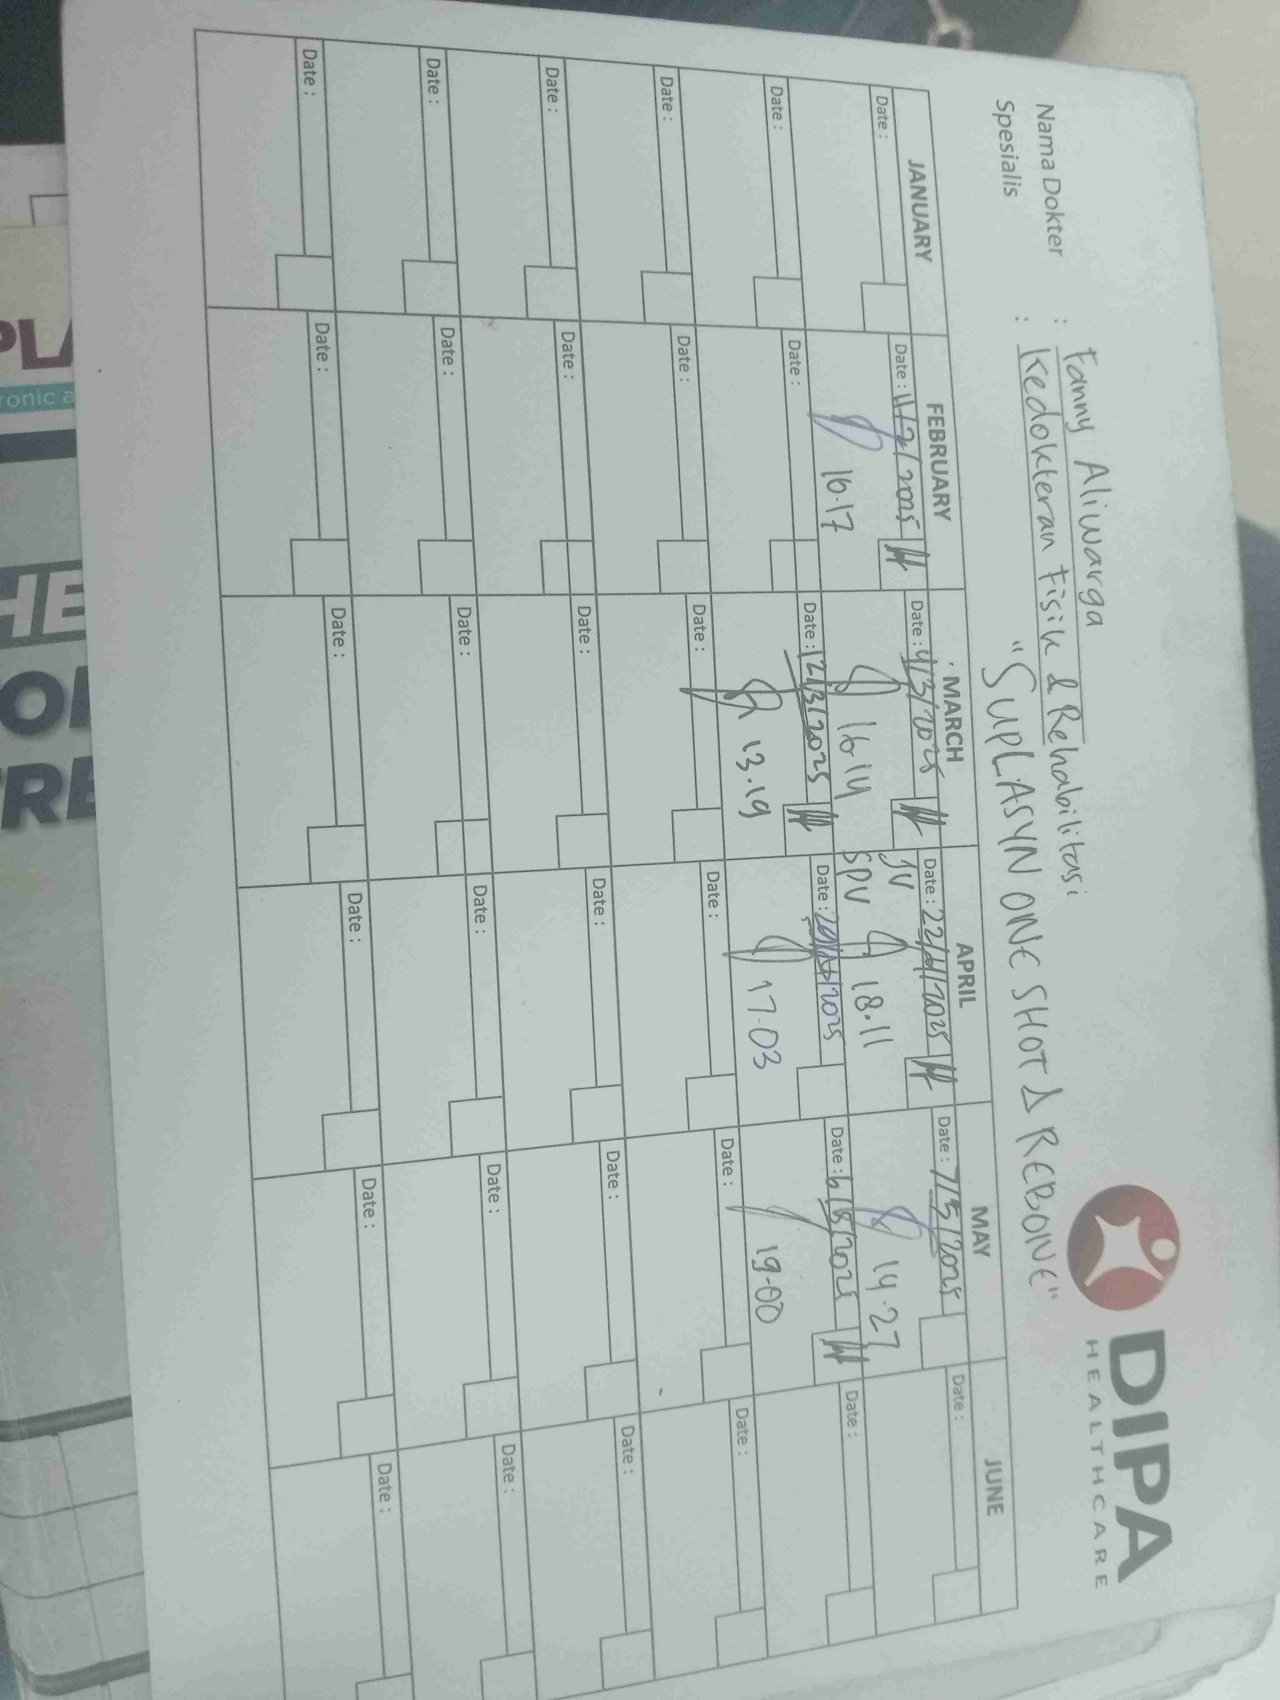 DIPA
HEALTHCARE
Nama Dokter : Fanny Aliwarga
Spesialis : Kedokteran Fisik & Rehabilitasi
"SUPLASYN ONE SHOT & REBONE"
JANUARY FEBRUARY MARCH APRIL MAY JUNE
Date : Date : 11/2/2025 Date : 4/3/2025 Date : 22/4/2025 Date : 7/5/2025 Date :
16.17 16.14 JV SPV 18.11 14.27
Date : Date : Date : 12/3/2025 Date : 29/4/2025 Date : 6/5/2025 Date :
13.19 17.03 19.00
Date : Date : Date : Date : Date : Date :
Date : Date : Date : Date : Date : Date :
Date : Date : Date : Date : Date : Date :
Date : Date : Date : Date : Date : Date :